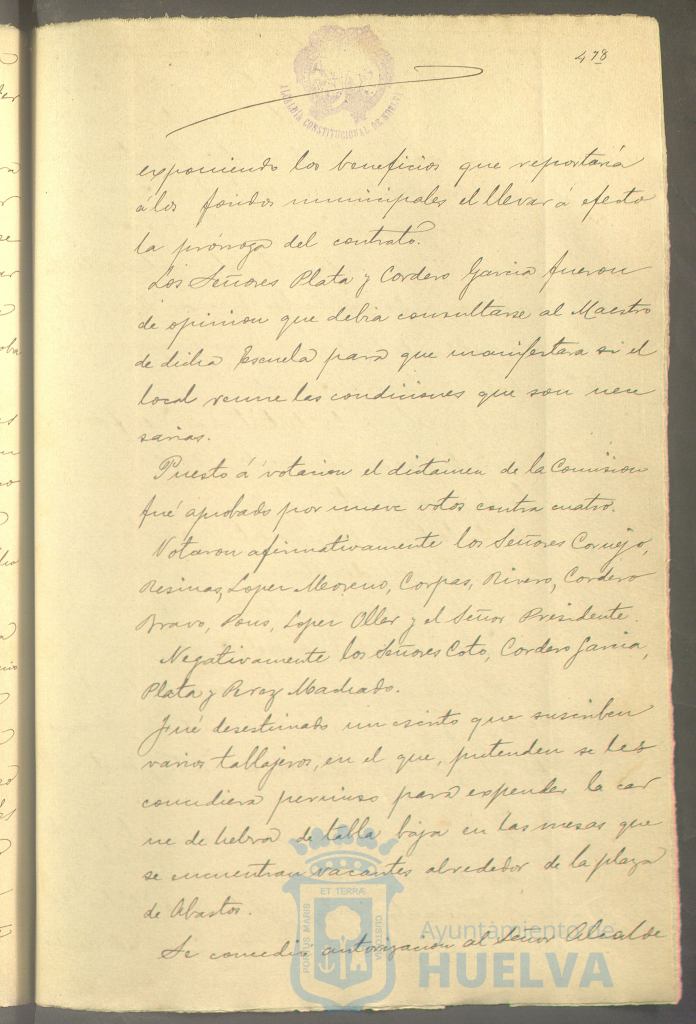 478
ALCALDÍA CONSTITUCIONAL DE HUELVA
exponiendo los beneficios que reportaria
á los fondos municipales el llevar á efecto
la prórroga del contrato.
Los Señores Plata y Cordero Garcia fueron
de opinion que debia consultarse al Maestro
de dicha Escuela para que manifestara si el
local reune las condiciones que son nece
sarias.
Puesto á votacion el dictámen de la Comision
fué aprobado por nueve votos contra cuatro.
Votaron afirmativamente los Señores Cornejo,
Resinas, Lopez Moreno, Corpas, Rivero, Cordero
Bravo, Pons, Lopez Oller y el Señor Presidente.
Negativamente los Señores Coto, Cordero Garcia,
Plata y Perez Machado.
Fué desestimado un escrito que suscriben
varios tablajeros, en el que, pretenden se les
concediera permiso para expender la car
ne de hebra de tabla baja en las mesas que
se encuentran vacantes alrededor de la plaza
de Abastos.
Se concedió autorizacion al Señor Alcalde
PORTUS MARIS ET TERRÆ CUSTODIA
Ayuntamiento de
HUELVA